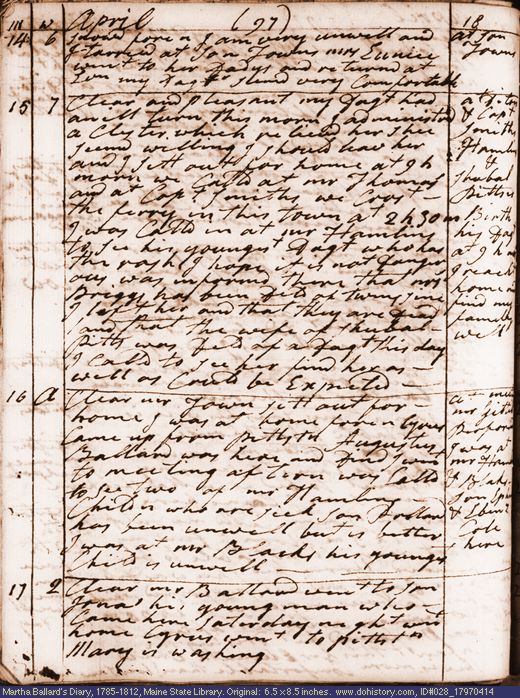 m w April (97) 18
14 6 I am very unwell and at Son
I tarried at Son Towns mrs Eunice Towns
went to her Dadys and returnd at
Evn my Dagt & Sⁿ and very Comfortable
15 7 Clear and pleasant my Dagt had at ditto
an ill turn this morn I administred & Capt
a Clyster which relievd her shee Smiths
seemd willing I should leav her Hamlin
and I sett out for home at 9 h &
morn we Calld at mr Thomas Shubal
and at Capt Smiths we Crost Pittss
the ferry in this town at 2 h 30 m Birth
I was Calld in at mr Hamlins his Dagt
to see his youngest Dagt who has at 7 h
the rash I hope it is not Danger I reacht
ous was informd there that mrs home &
Briggs has been dld of twins since find my
I left her and that they are Dead family
and that the wife of Shubal well
Pitts was Dld of a Dagt this day
I Calld to see her find her as
well as Could be Expected
16 A Clear mr Town sett out for at
home I was at home Cyrus mr
Came up from Pittston Augustus
Ballard was here and Dind I went I was at
to meeting aftern was Calld mr
to see two of mr Hamlins & Blacks
Childrn who are sick Son Pollard Son
has been unwell but is better &
I was at mr Blacks his youngst Cole
Child is unwell here
17 2 Clear mr Ballard went to Son
Jonas his young man who
Came here Saturday night went
home Cyrus went to pittstn
Mary is washing
Martha Ballard's Diary, 1785-1812, Maine State Library. Original: 6.5 x 8.5 inches. www.dohistory.com, ID#028_17970414